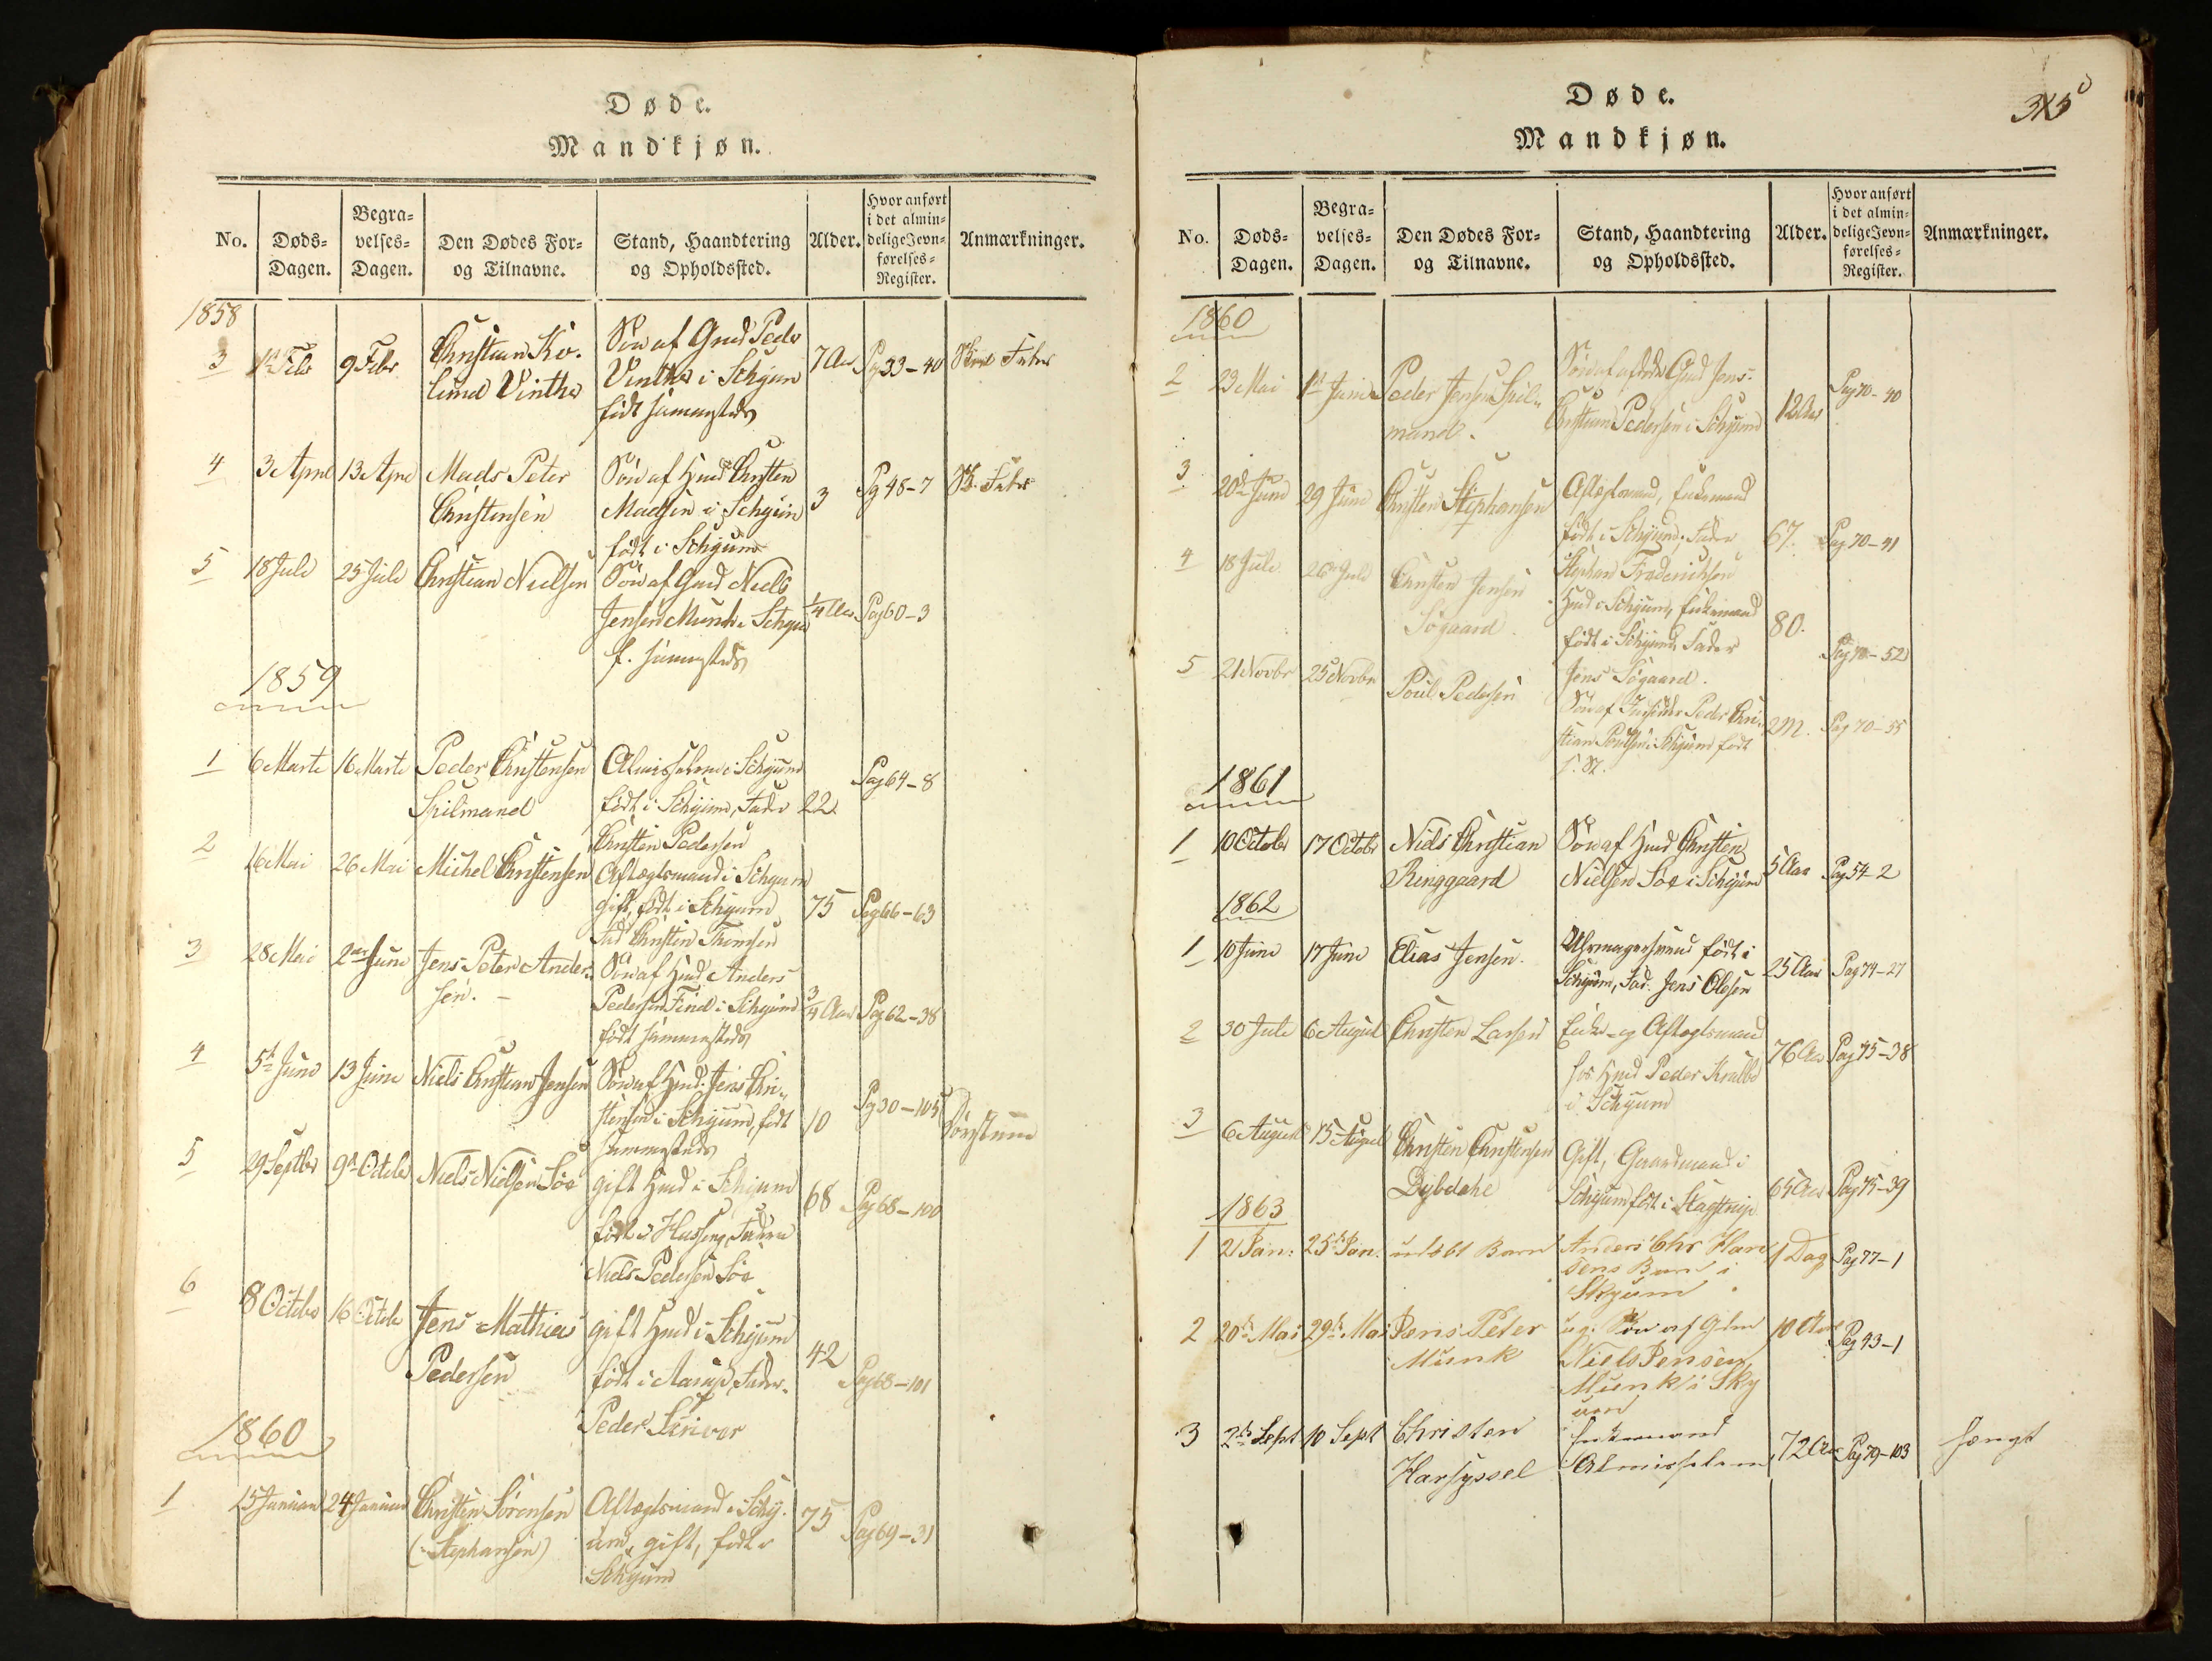 Døde.
Mandkjøn.
No.
Døds-
Dagen.
Begra-
velses-
Dagen.
Den Dødes For-
og Tilnavne.
Stand, Haandtering
og Opholdssted.
Alder.
Hvor anført
i det almin-
delige Jevn-
førelses-
Register.
Anmærkninger.
1858
3 1st Febr 9 Febr Christian Ko- Søn af Gmd Peder 7 Aar Pg 33-40
lund Vinther Vinther i Schyum
født sammesteds
4 3 April 13 April Mads Peter Søn af Hmd Christen 3 Pg 48-7
Christensen Madsen i Schyum
født i Schyum
5 18 Juli 25 Juli Christian Nielsen Søn af Gmd Niels 1/4 Aar Pag 60-3
Jensen Munk i Schyum
f. sammesteds
1859
1 6 Marts 16 Marts Peder Christensen Almisselem i Schyum 22 Pag 64-8
Spilmand født i Schyum, Fader
Christen Pedersen
2 16 Mai 26 Mai Michel Christensen Aftægtsmand i Schyum 75 Pag 66-63
gift, født i Schyum
Fad Christen Thomsen
3 28 Mai 2den Juni Jens Peter Ander- Søn af Hmd Anders 3/4 Aar Pag 62-38
sen. Pedersen Find i Schyum
født sammesteds
4 5t Juni 13 Juni Niels Christian Jensen Søn af Hmd. Jens Chri- 10 Pg 30-105
stensen i Schyum, født
sammesteds
5 29 Septbr 9de Octobr Niels Nielsen Söe gift Hmd i Schyum 68 Pag 68-100
født i Hassing, Fader
Niels Pedersen Söe
6 8 Octobr 16 Octobr Jens Mathias gift Hmd i Schyum 42 Pag 68-101
Pedersen født i Aarup, Fader
Peder Skriver
1860
1 15 Januar 24 Januar Christen Sörensen Aftægtsmand i Schy- 75 Pag 69-31
(Stephansen) um, gift, født i
Schyum
Døde.
Mandkjøn.
No.
Døds-
Dagen.
Begra-
velses-
Dagen.
Den Dødes For-
og Tilnavne.
Stand, Haandtering
og Opholdssted.
Alder.
Hvor anført
i det almin-
delige Jevn-
førelses-
Register.
Anmærkninger.
1860
2 23 Mai 1st Juni Peder Jensen Spil- Søn af afdøde Gmd Jens 12 Aar Pag 70-40
mand. Christian Pedersen i Schyum
3 20de Juni 29 Juni Christen Stephansen Aftægtsmand, Enkemand 67. Pag 70-41
født i Schyum, Fader
Stephan Frederichsen
4 18 Juli 26de Juli Christen Jensen Hmd i Schyum, Enkemand 80. Pag 70-52
Sögaard. født i Schyum, Fader
Jens Sögaard.
5 21 Novbr 25 Novbr Poul Pedersen Søn af Inds Peder Chri- 2 M. Pag 70-55
stian Poulsen i Schyum født
s. St.
1861
1 10 Octobr 17 Octobr Niels Christian Søn af Hmd Christen 5 Aar Pag 54-2
Ringgaard Nielsen Söe i Schyum
1862
1 10 Juni 17 Juni Elias Jensen. Uhrmagersvend født i 25 Aar Pag 74-27
Schyum, Fad. Jens Olesen
2 30 Juli 6 August Christen Larsen Enke- og Aftægtsmand 76 Aar Pag 75-38
hos Hmd Peder Kralbe
i Schyum
3 6 August 15 August Christen Christensen Gift, Gaardmand i 65 Aar Pag 75-39
Dybdahl Schyum født i Stagstrup
1863
1 21 Jan: 25de Jan. udøbt Barn Anders Chr Han 1 Dag Pag 77-1
sens Barn i
Skyum
2 20de Mai 29de Mai Jens Peter ug. Søn af Gdm 10 Aar Pag 43-1
Munk Niels Jensen
Munk i Sky
um
3 2de Sept 10 Sept Christen Enkemand 72 Aar Pag 79-103 hængt
Harsyssel Almisselem